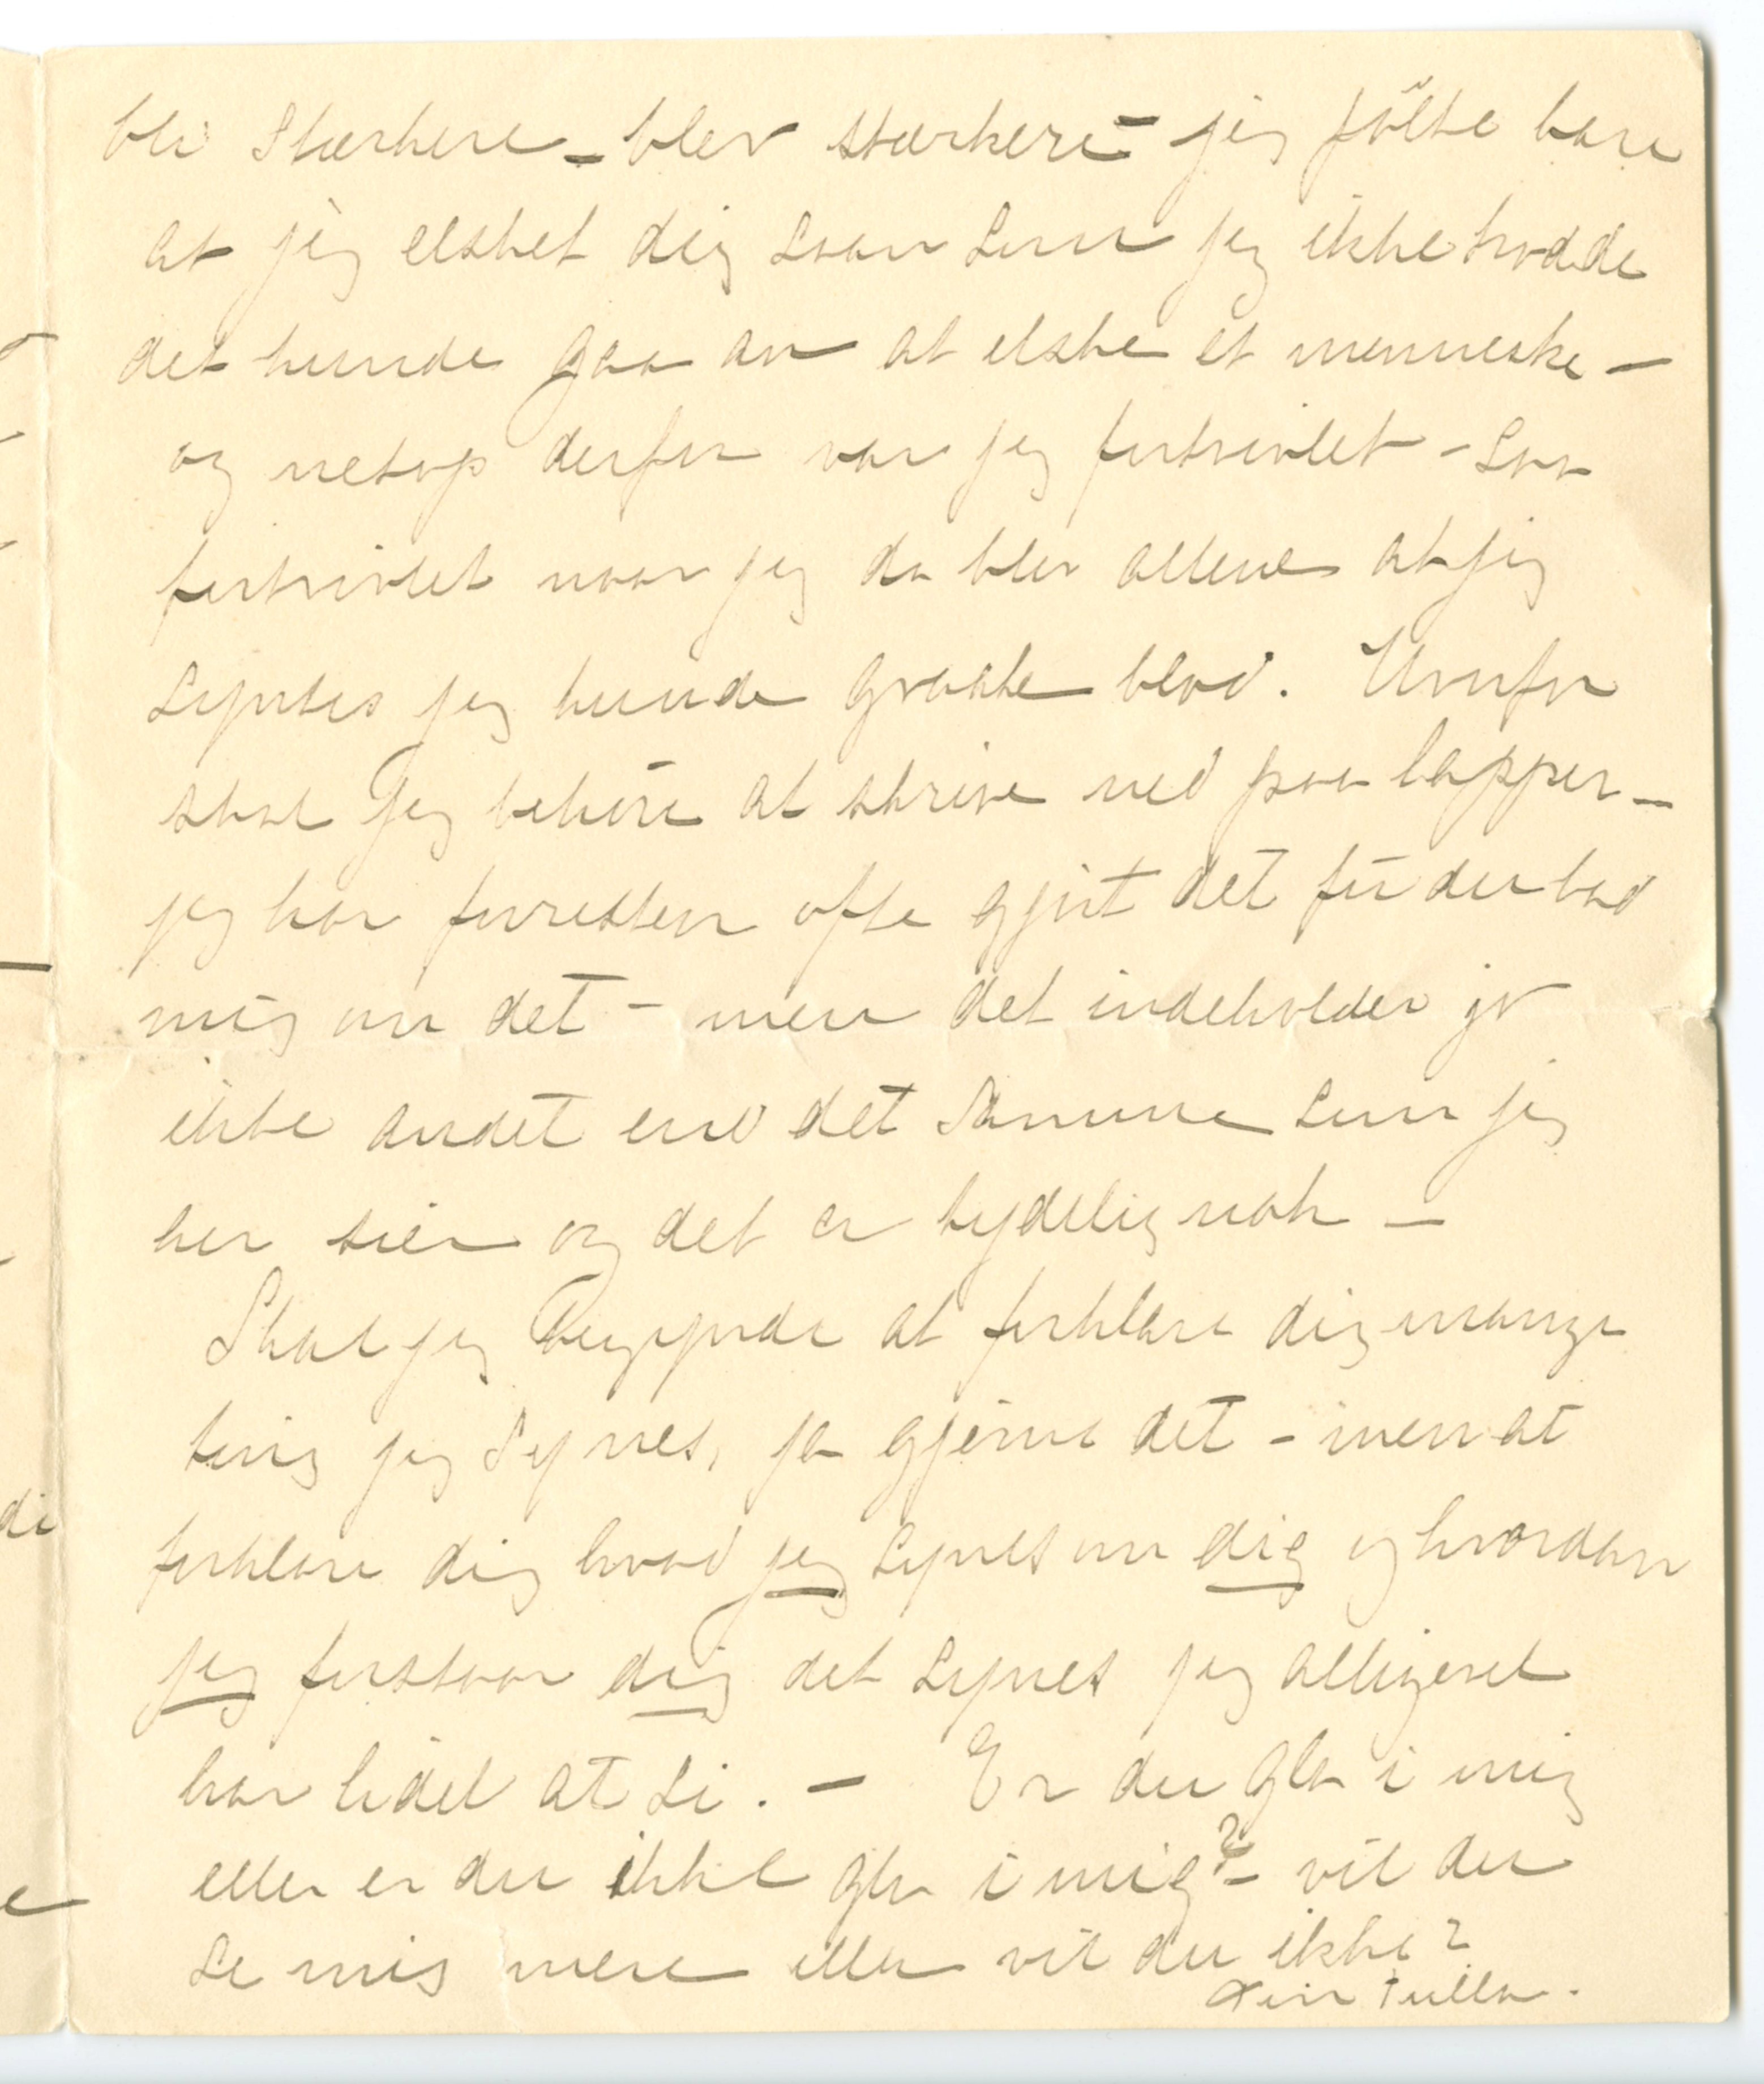 bli stærkere – blev stærkere – jeg fölte bare
at jeg elsket dig saan som jeg ikke trodde
det kunde gaa an at elske et menneske –
og netop derfor var jeg fortvivlet – saa
fortvivlet naar jeg da blev allene at jeg
syntes jeg kunde graate blod. Hvorfor
skal jeg behøve at skrive ned paa lapper –
jeg har forresten ofte gjort det før du bad
mig om det – men det indeholder jo
ikke andet end det samme som jeg
her sier og det er tydelig nok –
Skal jeg begynde at forklare dig mange
ting jeg synes, ja gjerne det – men at
forklare dig hvad jeg synes om dig og hvordan
jeg forstaar dig det synes jeg alligevel
har lidet at si. – Er du gla i mig
eller er du ikke gla i mig? – vil du
se mig mere eller vil du ikke?
Din Tulla.
di
e